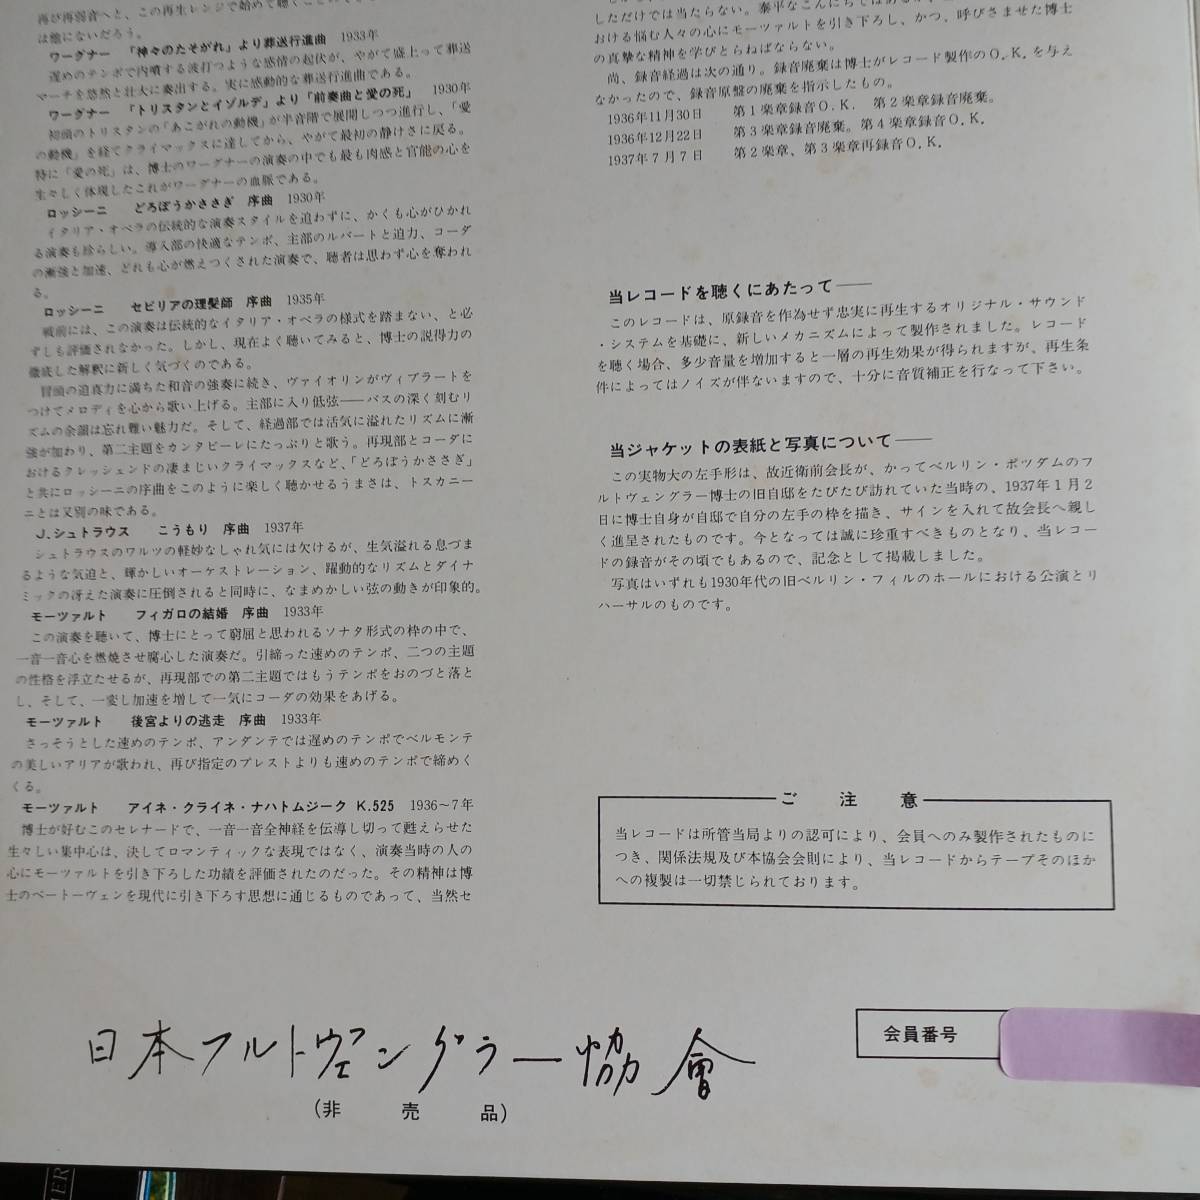 再び再弱音へと、この再生レンジで始めて聴くことの
は他にないだろう。
ワーグナー 「神々のたそがれ」より葬送行進曲 1933年
遅めのテンポで内噴する波打つような感情の起伏が、やがて盛上って葬送
マーチを悠然と壮大に奏出する。実に感動的な葬送行進曲である。
ワーグナー 「トリスタンとイゾルデ」より「前奏曲と愛の死」 1930年
初頭のトリスタンの「あこがれの動機」が半音階で展開しつつ進行し、「愛
の動機」を経てクライマックスに達してから、やがて最初の静けさに戻る。
特に「愛の死」は、博士のワーグナーの演奏の中でも最も肉感と官能の心を
生々しく体現したこれがワーグナーの血脈である。
ロッシーニ どろぼうかささぎ 序曲 1930年
イタリア・オペラの伝統的な演奏スタイルを追わずに、かくも心がひかれ
る演奏も珍らしい。導入部の快適なテンポ、主部のルバートと迫力、コーダ
の漸強と加速、どれも心が燃えつくされた演奏で、聴者は思わず心を奪われ
る。
ロッシーニ セビリアの理髪師 序曲 1935年
戦前には、この演奏は伝統的なイタリア・オペラの様式を踏まない、と必
ずしも評価されなかった。しかし、現在よく聴いてみると、博士の説得力の
徹底した解釈に新しく気づくのである。
冒頭の迫真力に満ちた和音の強奏に続き、ヴァイオリンがヴィブラートを
つけてメロディを心から歌い上げる。主部に入り低弦――バスの深く刻むリ
ズムの余韻は忘れ難い魅力だ。そして、経過部では活気に溢れたリズムに漸
強が加わり、第二主題をカンタビーレにたっぷりと歌う。再現部とコーダに
おけるクレッシェンドの凄まじいクライマックスなど、「どろぼうかささぎ」
と共にロッシーニの序曲をこのように楽しく聴かせるうまさは、トスカニー
ニとは又別の味である。
J.シュトラウス こうもり 序曲 1937年
シュトラウスのワルツの軽妙なしゃれ気には欠けるが、生気溢れる息づま
るような気迫と、輝かしいオーケストレーション、躍動的なリズムとダイナ
ミックの冴えた演奏に圧倒されると同時に、なまめかしい弦の動きが印象的。
モーツァルト フィガロの結婚 序曲 1933年
この演奏を聴いて、博士にとって窮屈と思われるソナタ形式の枠の中で、
一音一音心を燃焼させ腐心した演奏だ。引締った速めのテンポ、二つの主題
の性格を浮立たせるが、再現部での第二主題ではもうテンポをおのづと落と
し、そして、一変し加速を増して一気にコーダの効果をあげる。
モーツァルト 後宮よりの逃走 序曲 1933年
さっそうとした速めのテンポ、アンダンテでは遅めのテンポでベルモンテ
の美しいアリアが歌われ、再び指定のプレストよりも速めのテンポで締めく
くる。
モーツァルト アイネ・クライネ・ナハトムジーク K.525 1936～7年
博士が好むこのセレナードで、一音一音全神経を伝導し切って甦えらせた
生々しい集中心は、決してロマンティックな表現ではなく、演奏当時の人の
心にモーツァルトを引き下ろした功績を評価されたのだった。その精神は博
士のベートーヴェンを現代に引き下ろす思想に通じるものであって、当然セ
しただけでは当たらない。泰平なこんにちではあるが、
おける悩む人々の心にモーツァルトを引き下ろし、かつ、呼びさませた博士
の真摯な精神を学びとらねばならない。
尚、録音経過は次の通り。録音廃棄は博士がレコード製作のO.K.を与え
なかったので、録音原盤の廃棄を指示したもの。
1936年11月30日 第1楽章録音O.K. 第2楽章録音廃棄。
1936年12月22日 第3楽章録音廃棄。第4楽章録音O.K.
1937年7月7日 第2楽章、第3楽章再録音O.K.
当レコードを聴くにあたって――
このレコードは、原録音を作為せず忠実に再生するオリジナル・サウンド
・システムを基礎に、新しいメカニズムによって製作されました。レコード
を聴く場合、多少音量を増加すると一層の再生効果が得られますが、再生条
件によってはノイズが伴ないますので、十分に音質補正を行なって下さい。
当ジャケットの表紙と写真について――
この実物大の左手形は、故近衛前会長が、かってベルリン・ポツダムのフ
ルトヴェングラー博士の旧自邸をたびたび訪れていた当時の、1937年1月2
日に博士自身が自邸で自分の左手の枠を描き、サインを入れて故会長へ親し
く進呈されたものです。今となっては誠に珍重すべきものとなり、当レコー
ドの録音がその頃でもあるので、記念として掲載しました。
写真はいずれも1930年代の旧ベルリン・フィルのホールにおける公演とリ
ハーサルのものです。
ご注意
当レコードは所管当局よりの認可により、会員へのみ製作されたものに
つき、関係法規及び本協会会則により、当レコードからテープそのほか
への複製は一切禁じられております。
日本フルトヴェングラー協會
(非売品)
会員番号